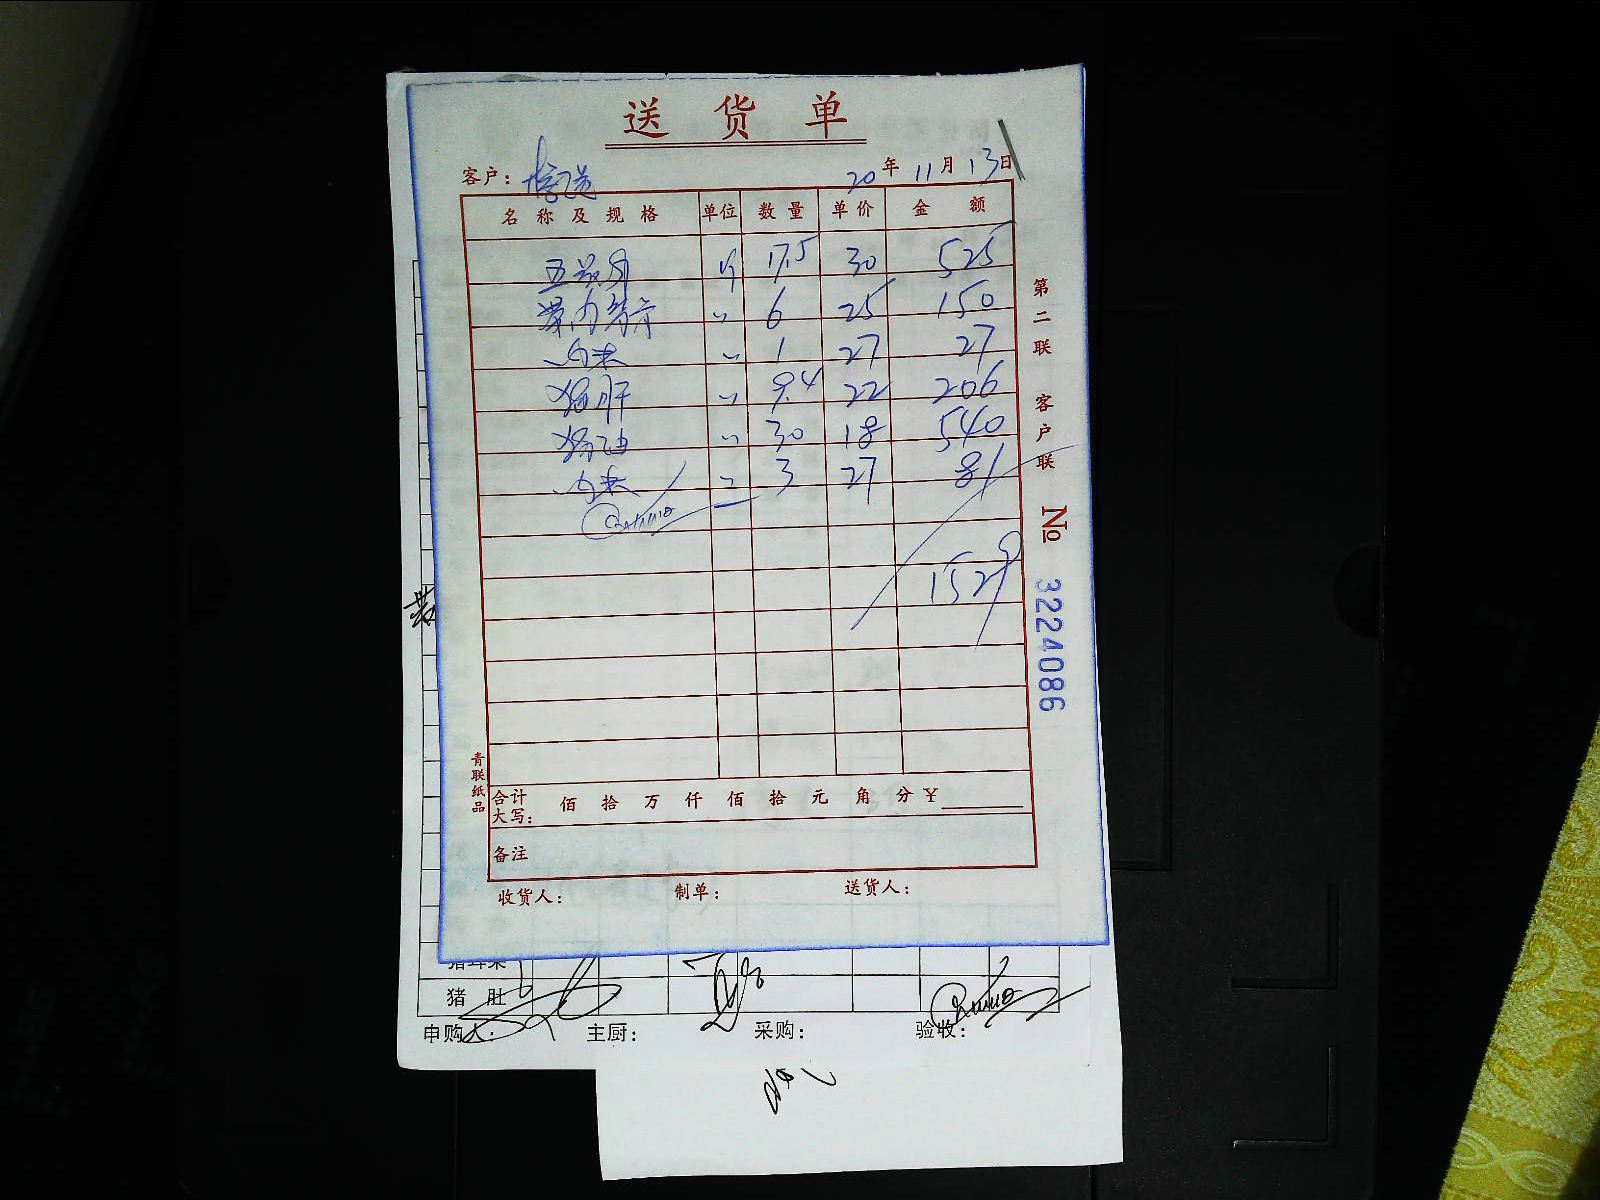 送货单
客户：
20年11月13日
名称及规格 单位 数量 单价 金额
五花肉 斤 17.5 30 525
〃 6 25 150
肉末 〃 1 27 27
猪肝 〃 9.4 22 206
猪油 〃 30 18 540
肉末 〃 3 27 81
1529
合计大写： 佰 拾 万 仟 佰 拾 元 角 分 ￥
备注
收货人： 制单： 送货人：
第二联 客户联
No 3224086
青联纸品
猪肚
申购人： 主厨： 采购： 验收：